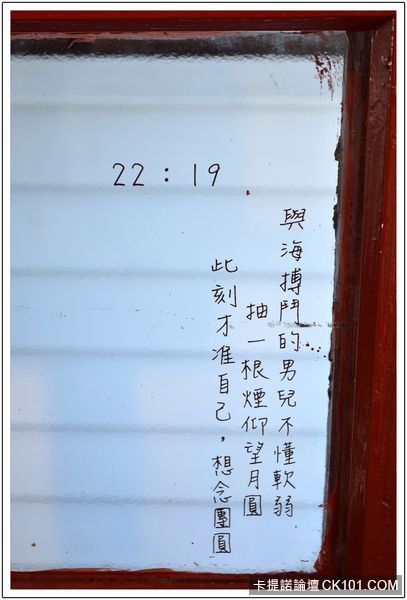 22：19
與海搏鬥的男兒不懂軟弱…
抽一根煙仰望月圓
此刻才准自己，想念團圓
卡提諾論壇 CK101.COM